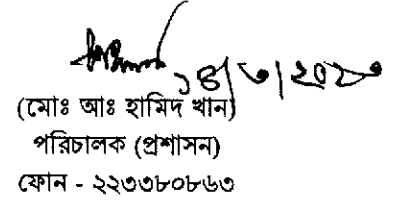 (মোঃ আঃ হামিদ খান)
পরিচালক (প্রশাসন)
ফোন - ২২৩৩৮০৮৬৩